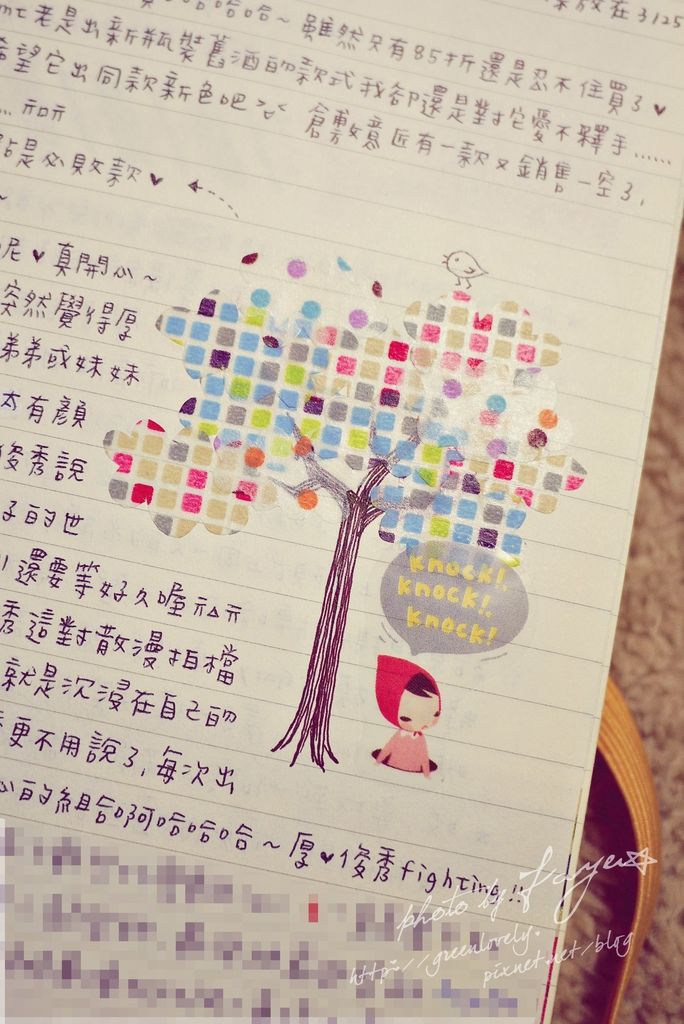 哈哈哈~雖然只有85折還是忍不住買了♥
mt老是出新瓶裝舊酒的款式我卻還是對它愛不釋手......
希望它出同款新色吧 倉敷意匠有一款又銷售一空了,
是必敗款♥
呢♥真開心~
突然覺得厚
弟弟或妹妹
太有顏
俊秀說
子的世
還要等好久喔
秀這對散漫拍檔
就是沉浸在自己的
更不用說了,每次出
心的組合啊哈哈哈~厚♥俊秀fighting!!
放在3125
knock!
knock!
knock!
photo by Faye
http://greenlovely.
pixnet.net/blog